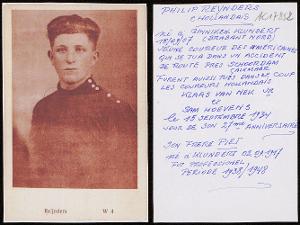 Reijnders W 4
AC17952
PHILIP REYNDERS
(HOLLANDAIS)
NÉ À GINNIKEN KLUNDERT
15/09/07 (BRABANT NORD)
JEUNE COUREUR DES AMÉRICAINES
QUI SE TUA DANS UN ACCIDENT
DE ROUTE PRÈS SCHOERDAM
ALKMAAR
FURENT AUSSI TUÉS DANS LE COUP
LES COUREURS HOLLANDAIS
KLAAS VAN NEK JR
ET
SAM HOEVENS
LE 15 SEPTEMBRE 1934
JOUR DE SON 27ème ANNIVERSAIRE
SON FRERE PIET
NÉ À KLUNDERT 02.01.1917
FUT PROFESSIONNEL
PERIODE 1938/1948